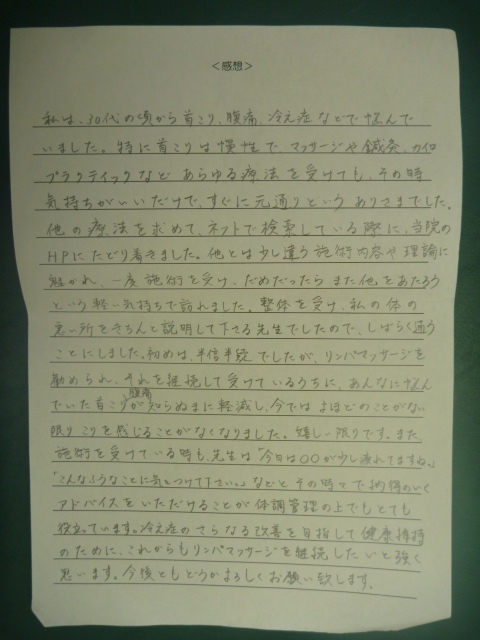 ＜感想＞
私は、30代の頃から首こり、腹痛、冷え症などで悩んで
いました。特に首こりは慢性で、マッサージや鍼灸、カイロ
プラクティックなど あらゆる療法を受けても、その時
気持ちがいいだけで、すぐに元通りという ありさまでした。
他の療法を求めて、ネットで検索している際に、当院の
HPにたどり着きました。他とは少し違う施術内容や理論に
魅かれ、一度施術を受け、だめだったら また他をあたろう
という軽い気持ちで訪れました。整体を受け、私の体の
悪い所をきちんと説明して下さる先生でしたので、しばらく通う
ことにしました。初めは、半信半疑でしたが、リンパマッサージを
勧められ、それを継続して受けているうちに、あんなに悩ん
でいた首こり、腹痛が知らぬまに軽減し、今では よほどのことがない
限り こりを感じることがなくなりました。嬉しい限りです。また、
施術を受けている時も、先生は「今日は〇〇が少し疲れてますね。」
「こんなふうなことに気をつけて下さい。」などと その時々で納得のいく
アドバイスをいただけることが 体調管理の上でもとても
役立っています。冷え症のさらなる改善を目指して 健康維持
のために、これからもリンパマッサージを継続したいと強く
思います。今後ともどうかよろしくお願い致します。